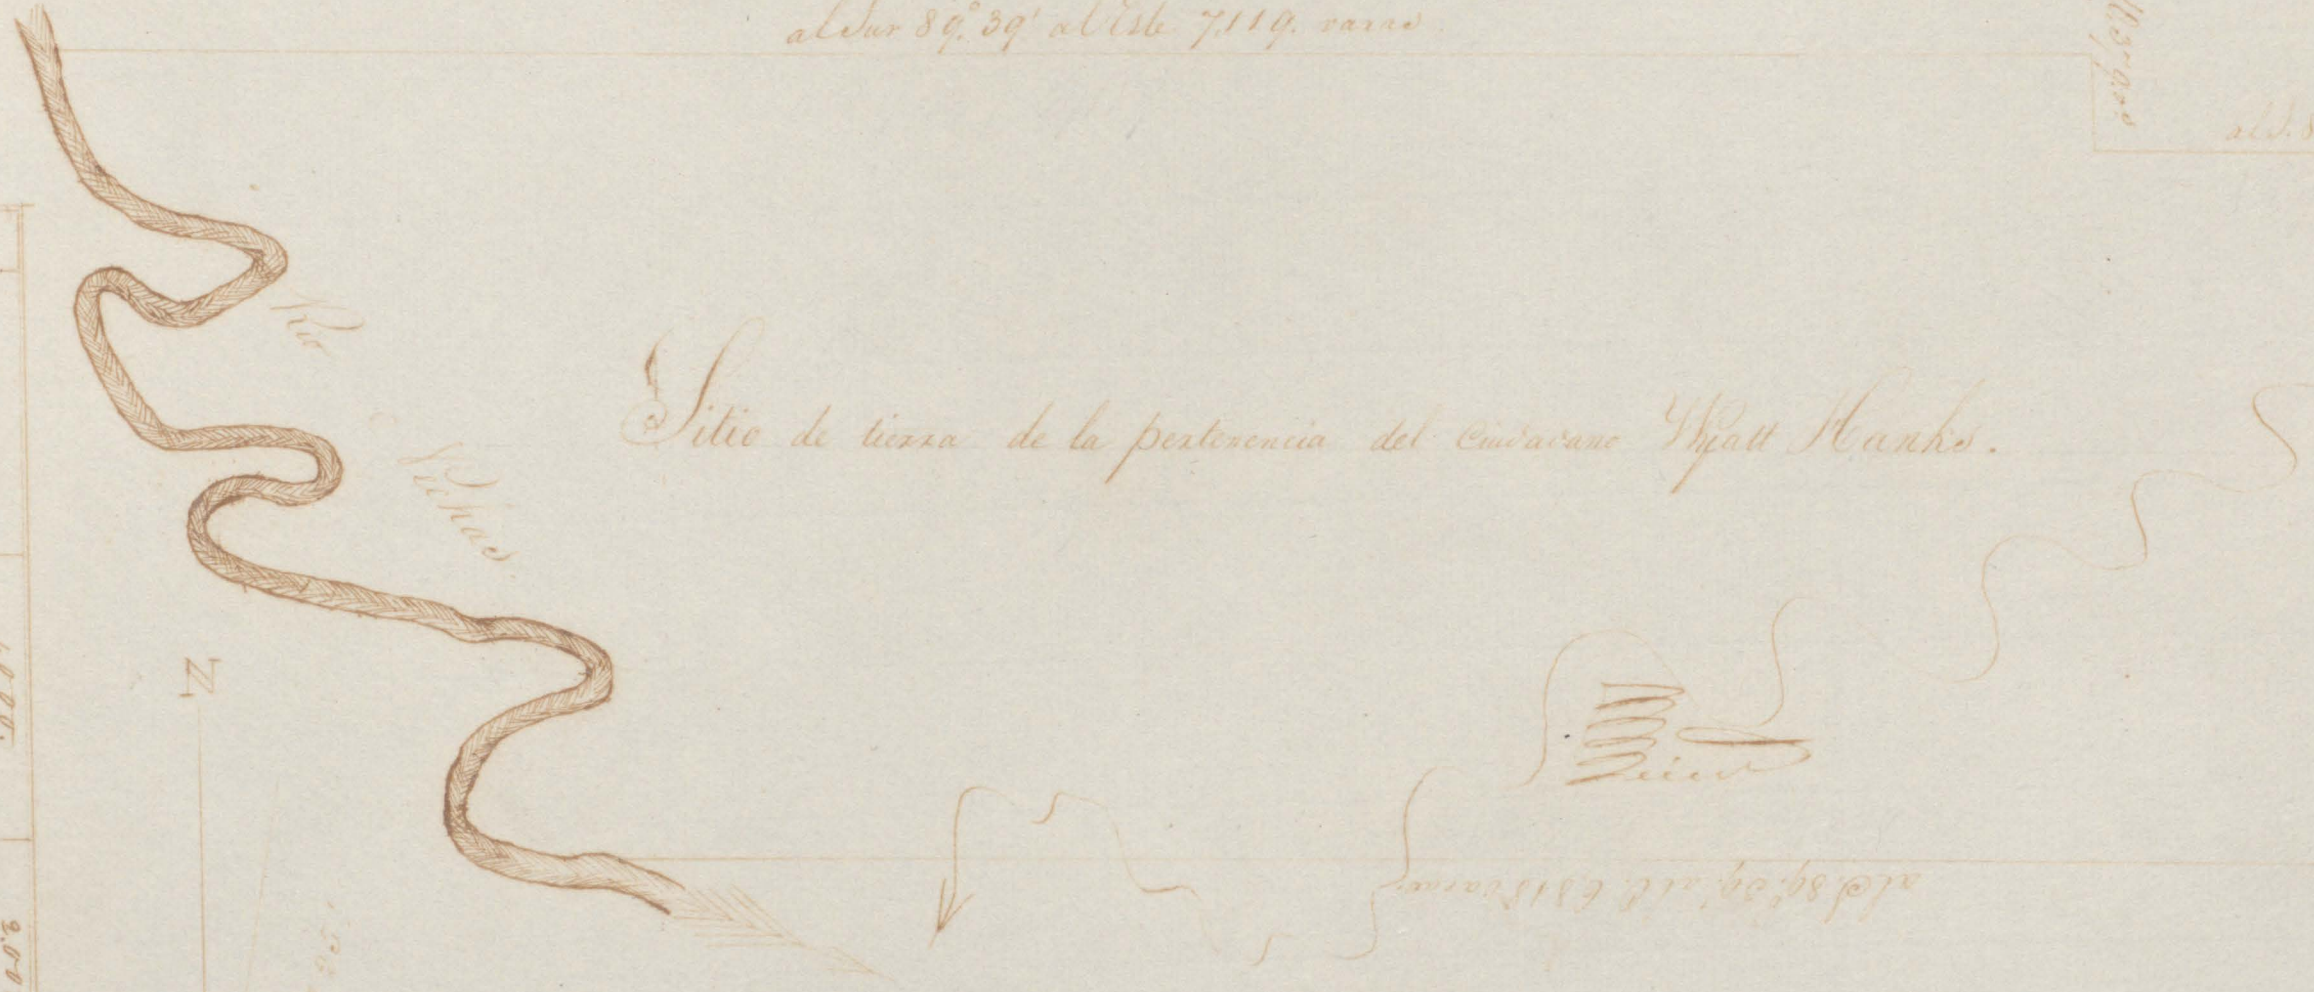 al Sur 89.° 39' al Este 7,119. varas
al S. 8
Rio
Nechas
Sitio de tierra de la pertenencia del Ciudadano Wyatt Hanks.
N
al S. 89.° 39' al E. 6,818 varas